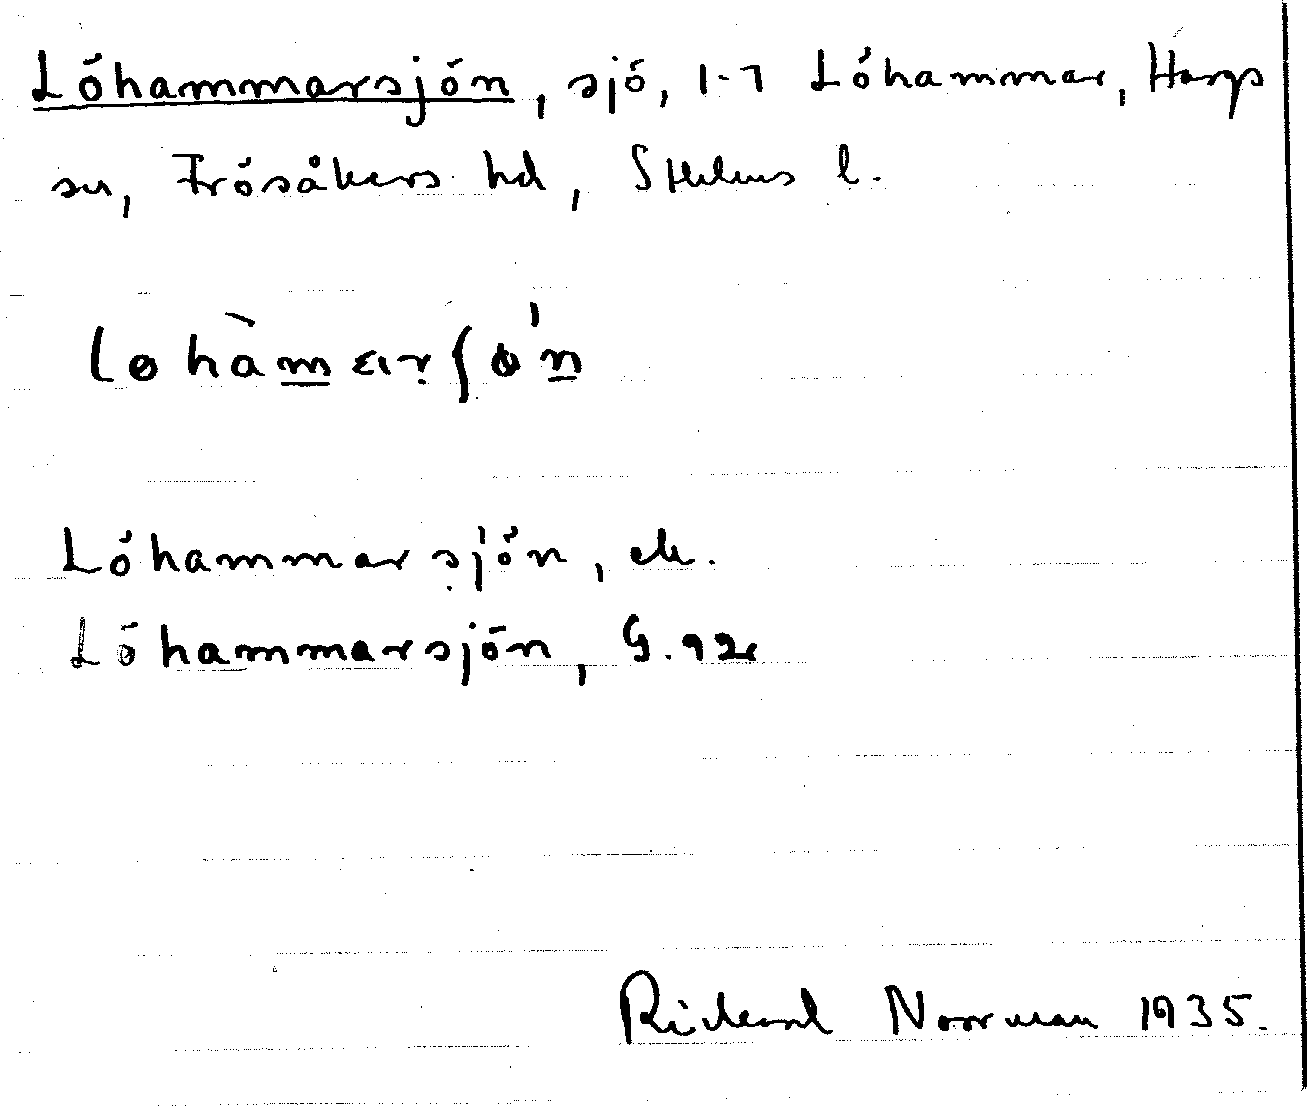 Löhammarsjön, sjö, 1-7 Löhammar, Hargs
sn, Frösåkers hd, Sthlms l.
Löhammarsjön, ek.
Löhammarsjön, G.
Rickard Norrman 1935.